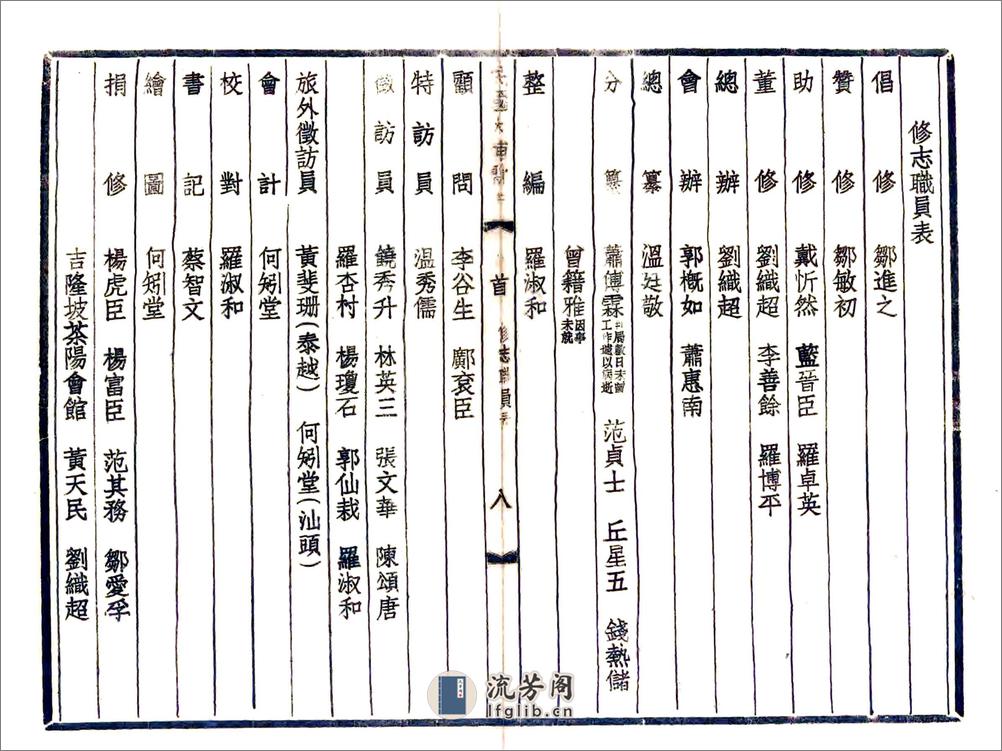 修志職員表
倡修 鄒進之
贊修 鄒敏初
助修 戴忻然 藍晉臣 羅卓英
董修 劉織超 李善餘 羅博平
總辦 劉織超
會辦 郭概如 蕭惠南
總纂 溫廷敬
分纂 蕭傅霖 范貞士 丘星五 錢熱儲
曾籍雅 因事未就
整編 羅淑和
首 修志職員表 八
顧問 李谷生 鄺袞臣
特訪員 溫秀儒
徵訪員 饒秀升 林英三 張文華 陳頌唐
羅杏村 楊瓊石 郭仙栽 羅淑和
旅外徵訪員 黃斐珊(泰越) 何矧堂(汕頭)
會計 何矧堂
校對 羅淑和
書記 蔡智文
繪圖 何矧堂
捐修 楊虎臣 楊富臣 范其務 鄒愛孚
吉隆坡茶陽會館 黃天民 劉織超
流芳阁
lfglib.cn